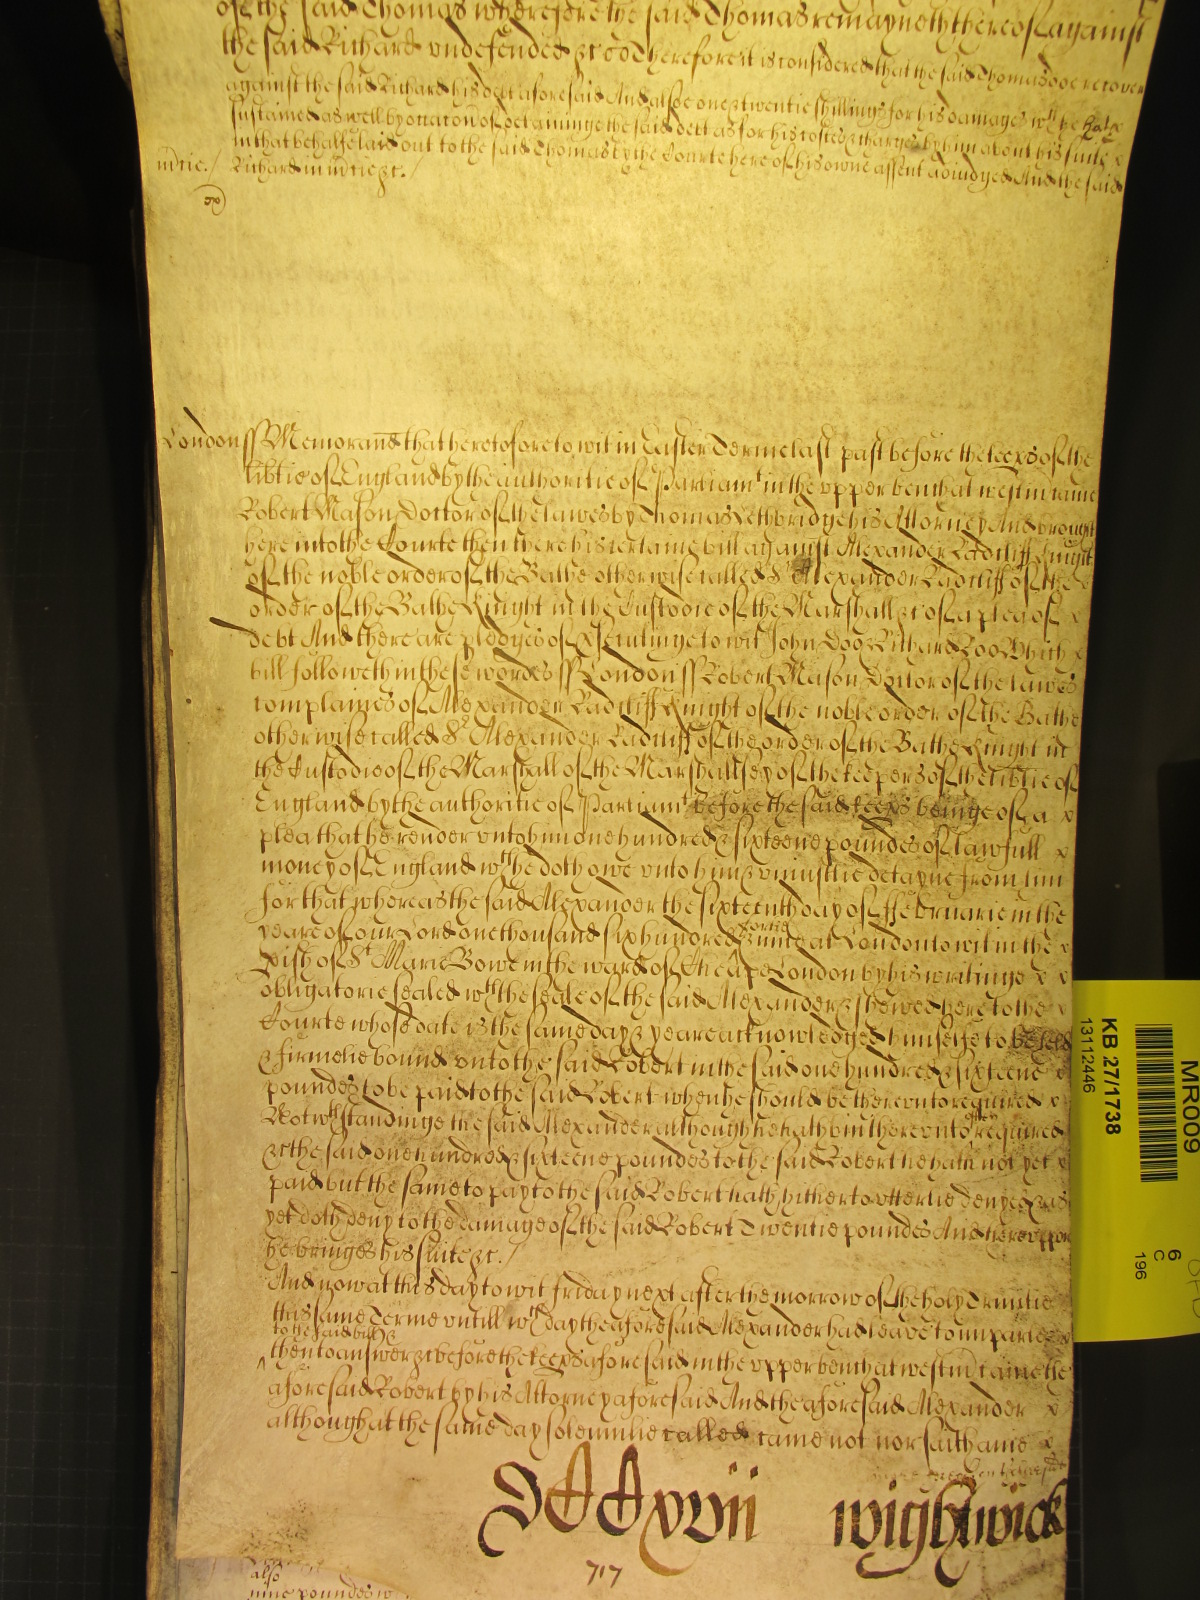 of the said Thomas wherefore the said Thomas remayneth thereof against
the said Richard undefended &c Therefore it is considered that the said Thomas doe recover
against the said Richard his debt aforesaid And alsoe one & twentie shillings for his damages wch he hath
sustained as well by occacion of detaininge the said debt as for his costes & charges by him about his suite x
in that behalfe laid out to the said Thomas by the Courte here of his owne assent adiudged And the said
Richard in m̄cie &c./
m̄cie./
London ss Memorand that heretofore to wit in Easter Terme last past before the keeps of the
lib̄tie of England by the authoritie of Parliamt in the upper bench at westm̄ came
Robert Mason Doctor of the lawes by Thomas Lethbridge his Attorney And brought
here into the Courte then there his certaine bill against Alexander Radcliff Knight
of the noble order of the Bathe otherwise called Sr Alexander Radcliff of the x
order of the Bathe Knight in the Custodie of the Marshall &c of a plea of x
debt And there are pledges of p̱secutinge to wit John Doo & Richard Roo Which x
bill followeth in these wordes ss London ss Robert Mason Doctor of the lawes
complaines of Alexander Radcliff Knight of the noble order of the Bathe
otherwise called Sr Alexander Radcliff of the order of the Bathe Knight in
the Custodie of the Marshall of the Marshallsey of the keepers of the lib̄tie of
England by the authoritie of Parliamt before the said keeps beinge of a x
plea that he render unto him one hundred & sixteene poundes of lawfull x
money of England wch he doth owe unto him & uniustlie detayne from him
for that whereas the said Alexander the sixteenth day of ffebruarie in the
yeare of our Lord one thousand six hundred fortie & nine at London to wit in the x
p̱ish of St Marie Bowe in the ward of Cheape London by his writinge x x
obligatorie sealed wth the seale of the said Alexander & shewed here to the x
Courte whose date is the same day & yeare acknowledged himselfe to be held
& firmelie bound unto the said Robert in the said one hundred & sixteene x
poundes to be paid to the said Robert when he should be thereunto required x
Notwthstandinge the said Alexander although he hath bin thereunto often required
&c the said one hundred & sixteene poundes to the said Robert he hath not yet x
paid but the same to pay to the said Robert hath hitherto utterlie denyed & as
yet doth deny to the damage of the said Robert Twentie poundes And thereuppon
he bringes his suite &c./
And now at this day to wit friday next after the morrow of the holy Trinitie
this same Terme untill wch day the aforesaid Alexander had leave to imparle x
to the said bill &
then to answer &c before the keeps aforesaid in the upper bench at westm̄ came the
aforesaid Robert by his Attorney aforesaid And the aforesaid Alexander x
although at the same day solemnlie called came not nor saith anie x
DCCxvii wightwick
717
also
nine poundes w
KB 27/1738
13112446
MR009
6
C
196